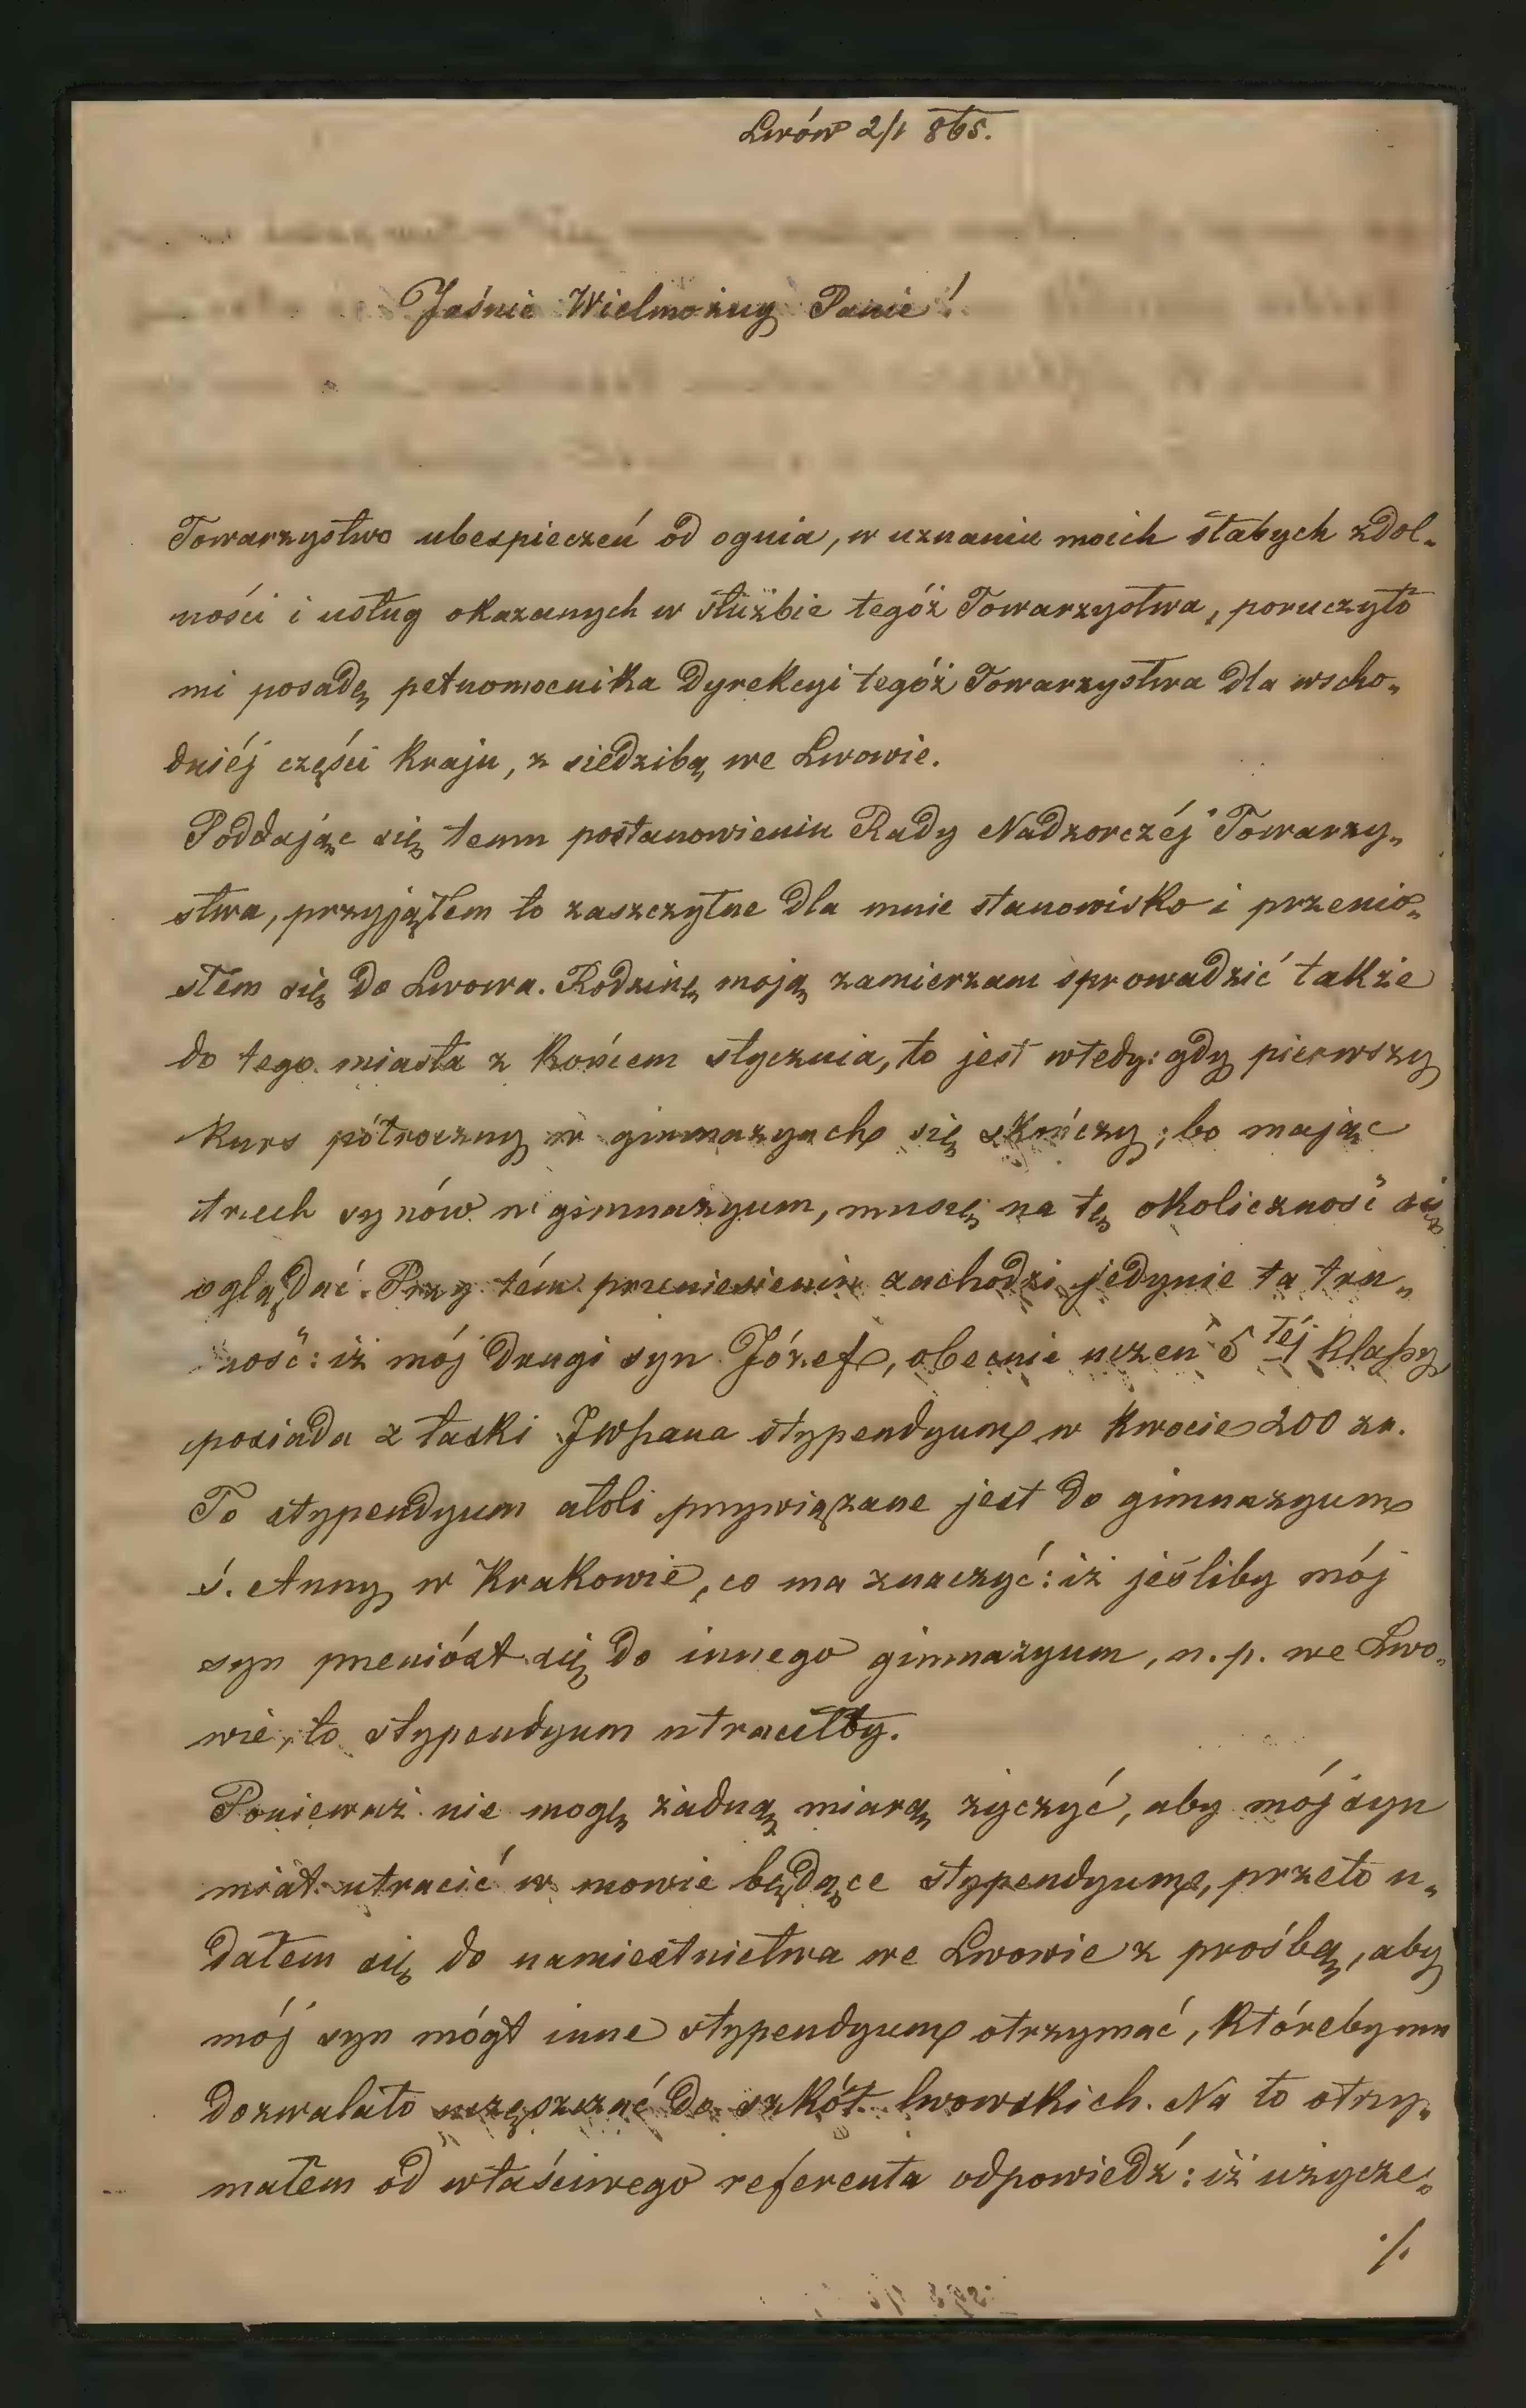 Lwów 2/1 865.
Jaśnie Wielmożny Panie!
Towarzystwo ubespieczeń od ognia, w uznaniu moich słabych zdol„
ności i usług okazanych w służbie tegóż Towarzystwa, poruczyło
mi posadę pełnomocnika Dyrekcyi tegóż Towarzystwa dla wscho„
dniéj części kraju, z siedzibą we Lwowie.
Poddając się temu postanowieniu Rady Nadzorczéj Towarzy„
stwa, przyjąłem to zaszczytne dla mnie stanowisko i przenio„
słem się do Lwowa. Rodzinę moją zamierzam sprowadzić także
do tego miasta z końcem stycznia, to jest wtedy: gdy pierwszy
kurs półroczny w gimnazyach się skończy; bo mając
trzech synów w gimnazyum, muszę na tę okoliczność się
oglądać. Przy tém przeniesieniu zachodzi jedynie ta tru„
ność: iż mój drugi syn Józef, obecnie uczeń 5téj klaſsy
posiada z łaski JWPana stypendyum w kwocie 200 zr.
To stypendyum atoli przywiązane jest do gimnazyum
ś. Anny w Krakowie, co ma znaczyć: iż jeśliby mój
syn przeniósł się do innego gimnazyum, n. p. we Lwo„
wie, to stypendyum utraciłby.
Ponieważ nie mogę żadną miarą życzyć, aby mój syn
miał utracić w mowie będące stypendyum, przeto u„
dałem się do namiestnictwa we Lwowie z prośbą, aby
mój syn mógł inne stypendyum otrzymać, któreby mu
dozwalało uczęszczać do szkół lwowskich. Na to otrzy„
małem od właściwego referenta odpowiedź: iż użycze„
./.